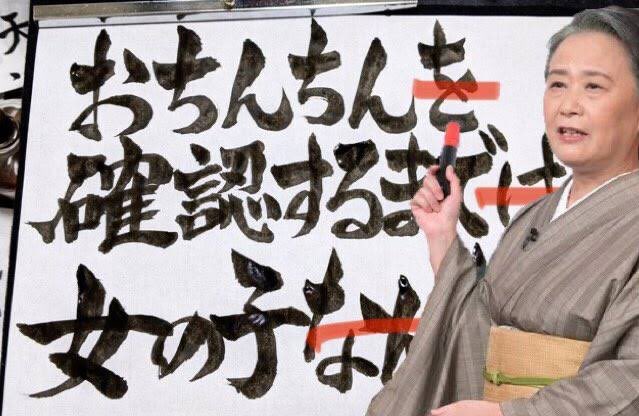 おちんちんを
確認するまでは
女の子な